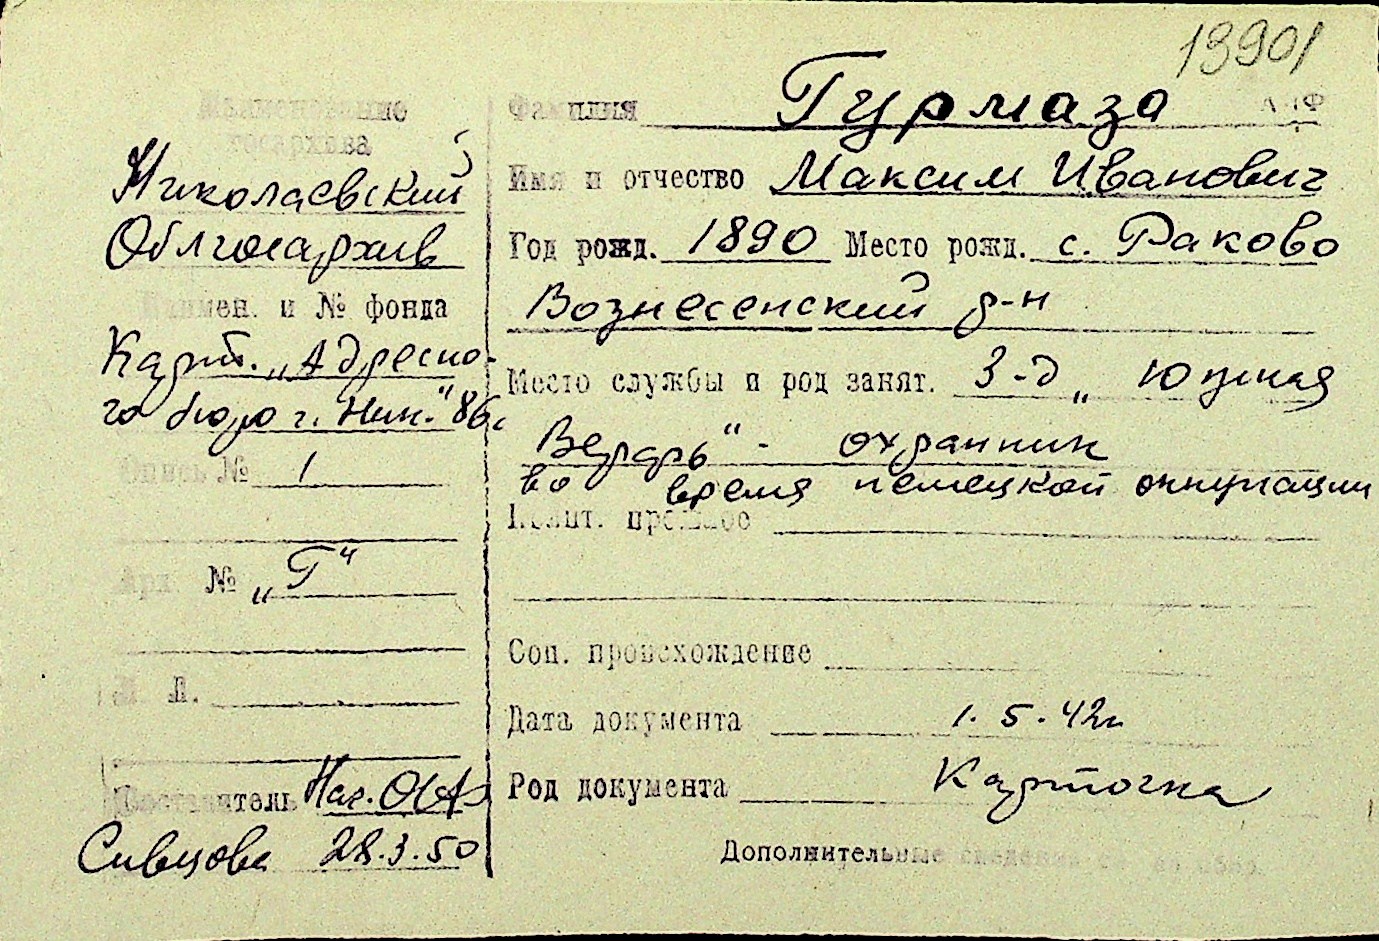 13901
Наименование
госархива
Николаевский
Облгосархив
Наимен. и № фонда
Карт. „Адресно-
го бюро г. Ник." 86с
Опись № 1
Арх. № „Г"
Л. Л.
Составитель Нач. ОИА
Сивцова 28.3.50
Фамилия Гурмаза
Имя и отчество Максим Иванович
Год рожд. 1890 Место рожд. с. Раково
Вознесенский р-н
Место службы и род занят. З-д „Южная
Верфь" - охранник
во время немецкой оккупации
Полит. прошлое
Соц. происхождение
Дата документа 1.5.42г
Род документа Карточка
Дополнительные сведения см. на обор.